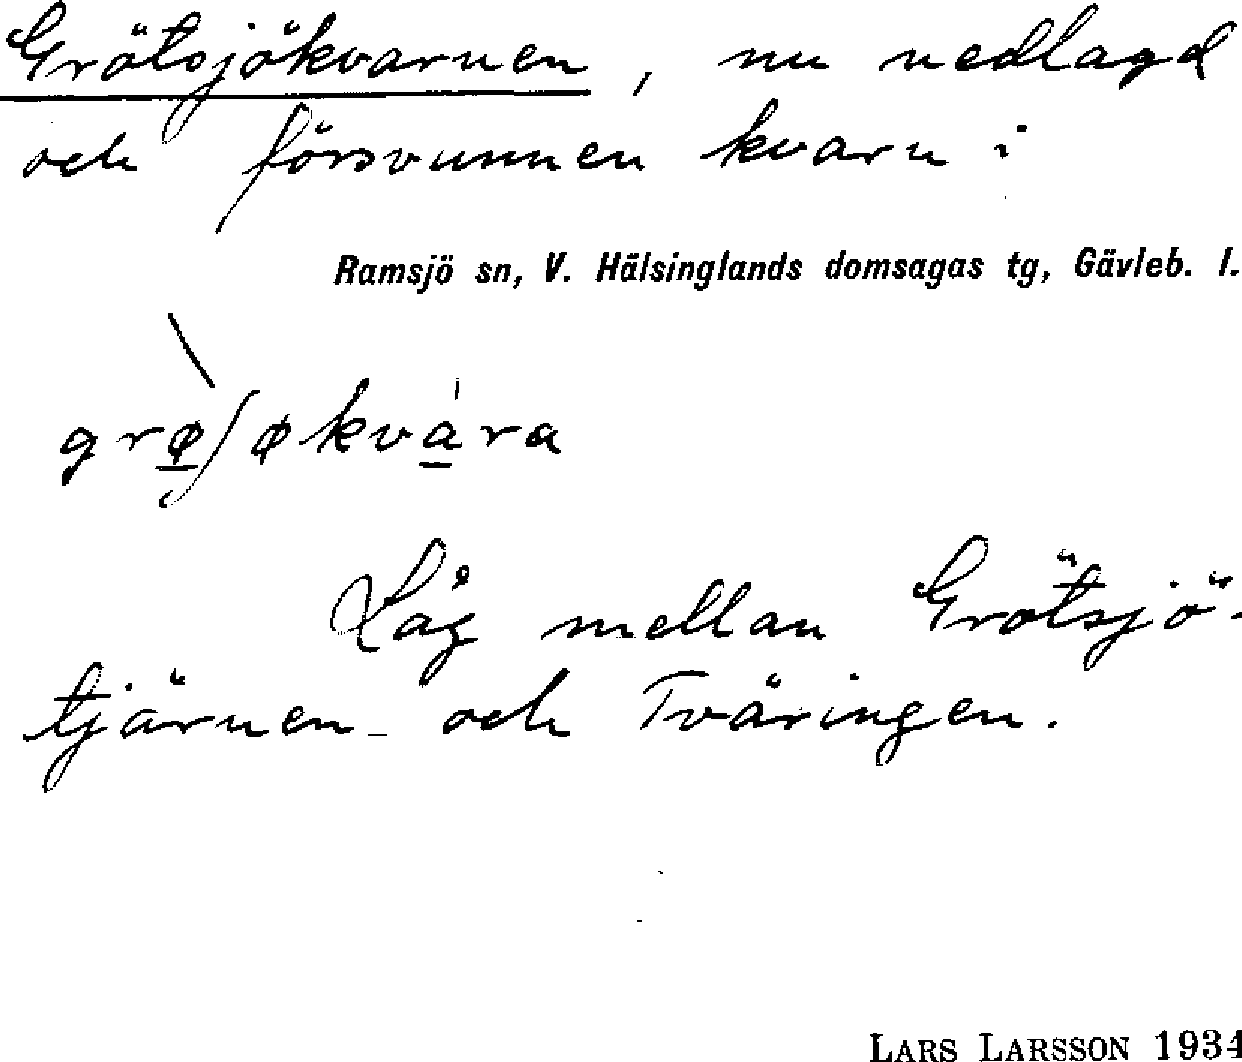 Grötsjökvarnen, nu nedlagd
och försvunnen kvarn i
Ramsjö sn, V. Hälsinglands domsagas tg, Gävleb. l.
grø̱ʃøkvà̱ra
Låg mellan Grötsjö-
tjärnen och Tväringen.
LARS LARSSON 1934